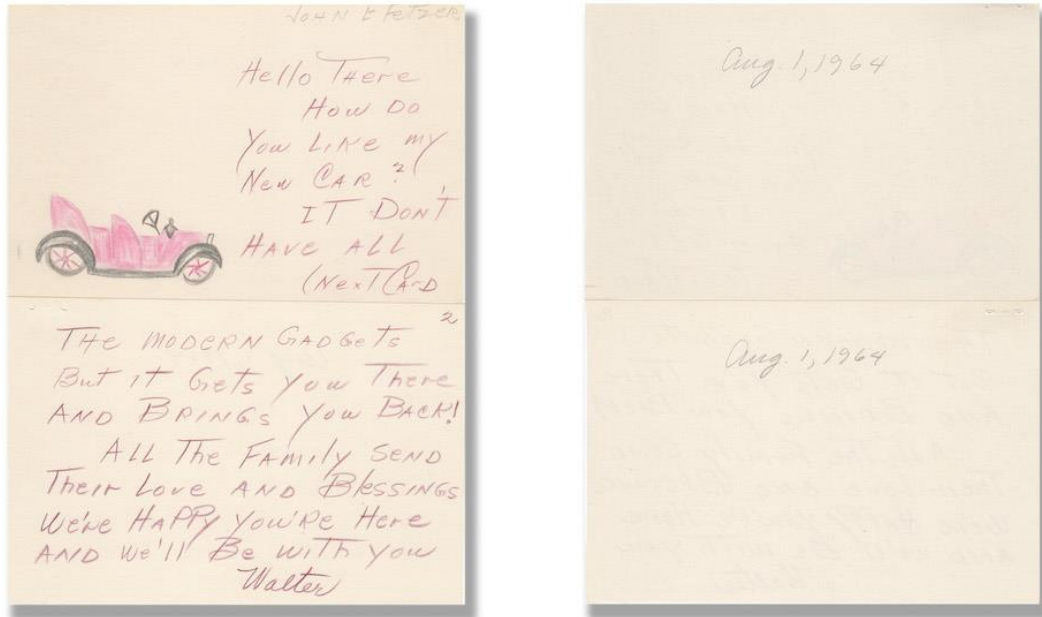 JOHN E FETZER
Hello There
How Do
You Like my
New Car?
IT Don't
Have all
(Next Card
2
The modern Gadgets
But it Gets you There
And Brings you Back!
All The Family Send
Their Love And Blessings
We're Happy You're Here
And We'll Be with you
Walter
Aug. 1, 1964
Aug. 1, 1964